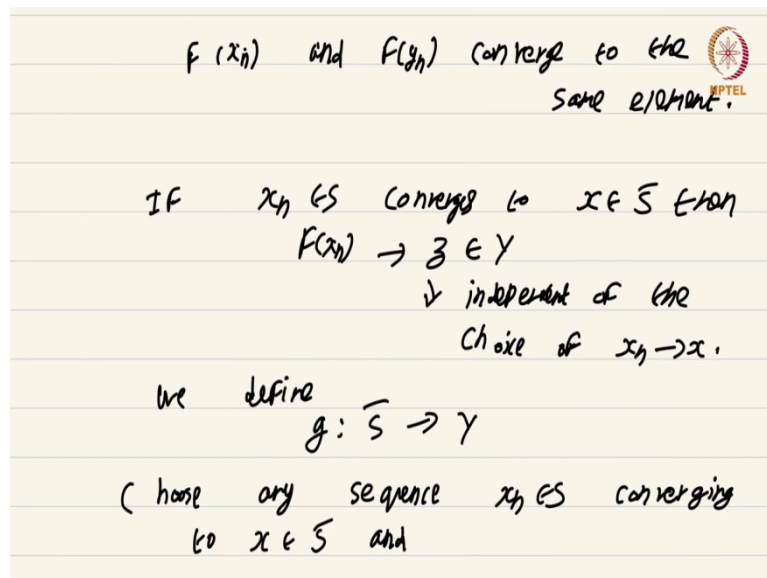 F(xₙ) and F(yₙ) converge to the
NPTEL
same element.
If xₙ ∈ S converges to x ∈ S̅ then
F(xₙ) → z ∈ Y
↓ independent of the
choice of xₙ → x.
we define
g : S̅ → Y
Choose any sequence xₙ ∈ S converging
to x ∈ S̅ and